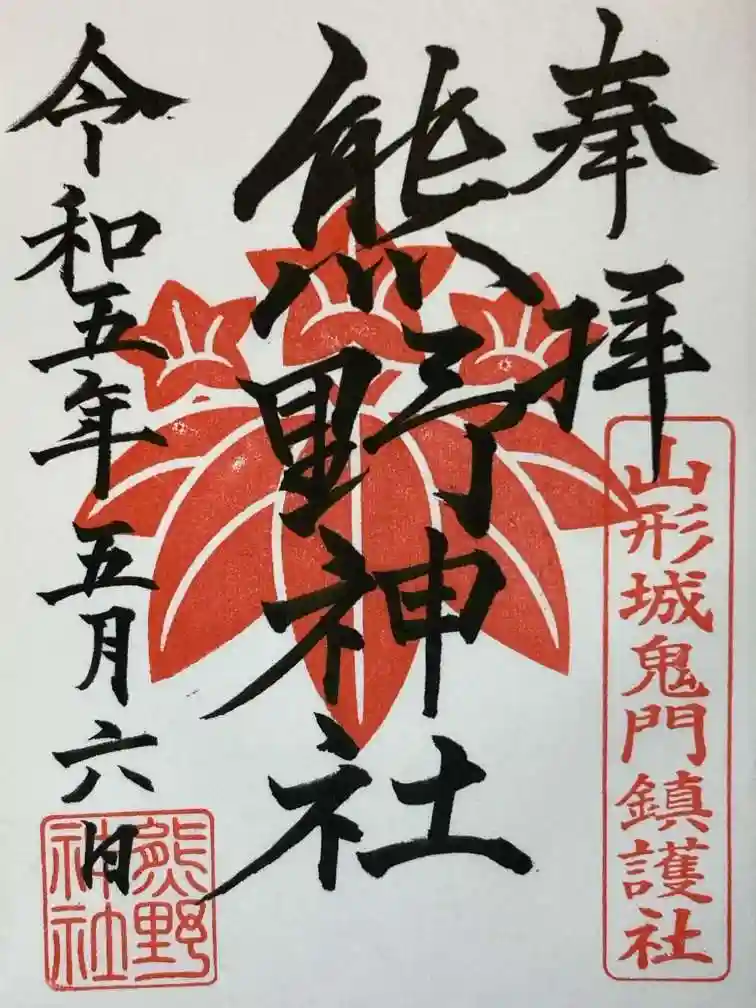 奉拝
山形城鬼門鎮護社
熊野神社
令和五年五月六日
熊野
神社